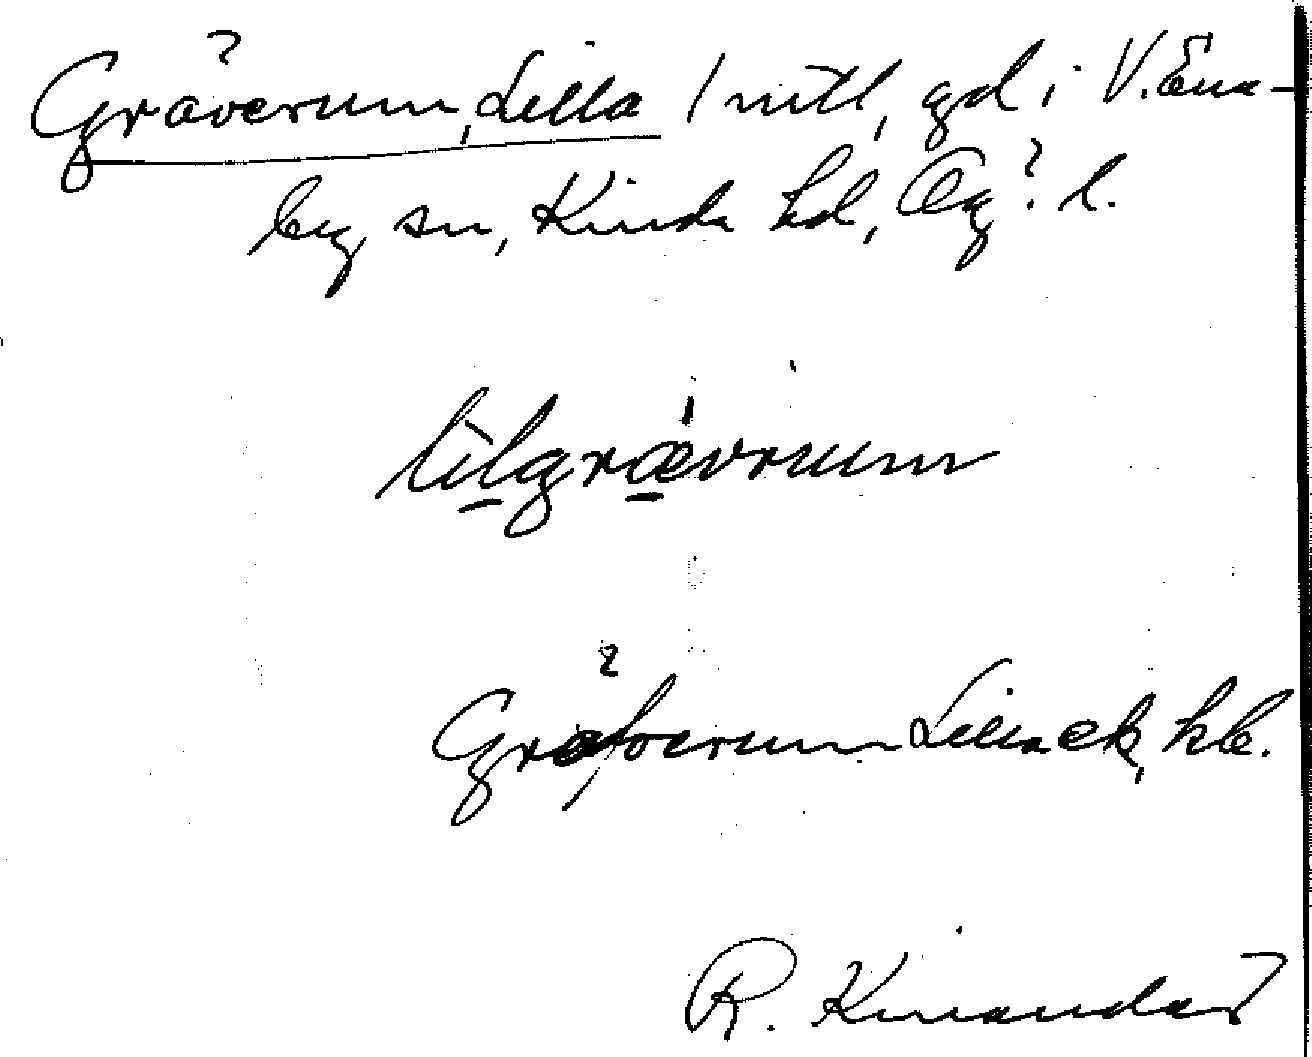 Gräverum, Lilla 1 mtl, gd i V. Ene-
by sn, Kinda hd, Ög. l.
lilgrævrum
Gräfverum Lilla ek, kb.
R. Kinander